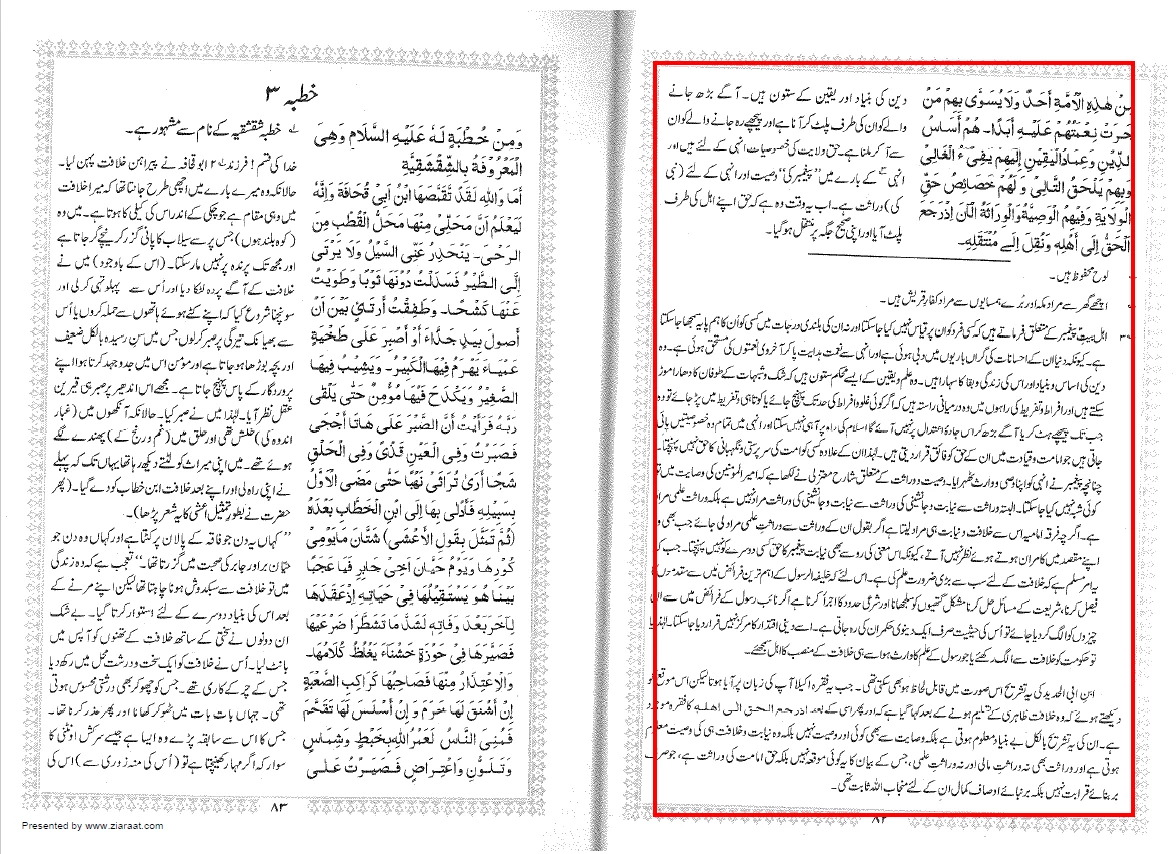 مِنْ هٰذِهِ الْاُمَّةِ اَحَدٌ وَلَا یُسَوّٰی بِهِمْ مَنْ
جَرَتْ نِعْمَتُهُمْ عَلَیْهِ اَبَدًا۔ هُمْ اَسَاسُ
الدِّیْنِ وَعِمَادُ الْیَقِیْنِ اِلَیْهِمْ یَفِیْءُ الْغَالِیْ
وَبِهِمْ یَلْحَقُ التَّالِیْ وَلَهُمْ خَصَائِصُ حَقِّ
الْوِلَایَةِ وَفِیْهِمُ الْوَصِیَّةُ وَالْوِرَاثَةُ اَلْآنَ اِذْ رَجَعَ
الْحَقُّ اِلٰی اَهْلِهِ وَنُقِلَ اِلٰی مُنْتَقَلِهِ۔
دین کی بنیاد اور یقین کے ستون ہیں۔ آگے بڑھ جانے
والے کو ان کی طرف پلٹ کر آنا ہے اور پیچھے رہ جانے والے کو ان
سے آ کر ملنا ہے۔ حق ولایت کی خصوصیات انہی کے لئے ہیں اور
انہی کے بارے میں ''پیغمبر کی'' وصیت اور انہی کے لئے (نبی
کی) وراثت ہے۔ اب یہ وقت وہ ہے کہ حق اپنے اہل کی طرف
پلٹ آیا اور اپنی صحیح جگہ پر منتقل ہو گیا۔
لوح محفوظ ہیں۔
اچھے گھر سے مراد مکہ اور بُرے ہمسایوں سے مراد کفار قریش ہیں۔
۳ اہل بیتؑ پیغمبر کے متعلق فرماتے ہیں کہ کسی فرد کو ان پر قیاس نہیں کیا جا سکتا اور نہ ان کی بلندی درجات میں کسی کو اُن کا ہم پایہ سمجھا جا سکتا
ہے۔ کیونکہ دنیا ان کے احسانات کی گراں باریوں میں دبی ہوئی ہے اور انہی سے نعمت ہدایت پا کر آخروی نعمتوں کی مستحق ہوئی ہے۔ وہ
دین کی اساس و بنیاد اور اس کی زندگی و بقا کا سہارا ہیں۔ وہ علم و یقین کے ایسے محکم ستون ہیں کہ شک و شبہات کے طوفان کا دھارا موڑ
سکتے ہیں اور افراط و تفریط کی راہوں میں وہ درمیانی راستہ ہیں کہ اگر کوئی غلو و افراط کی حد تک پہنچ جائے یا کوتاہی و تفریط میں پڑ جائے تو وہ
جب تک پیچھے ہٹ کر یا آگے بڑھ کر اس جادۂ اعتدال پر نہیں آئے گا اسلام کی راہ پر آ ہی نہیں سکتا اور انہی میں تمام وہ خصوصیتیں پائی
جاتی ہیں جو امامت و قیادت میں ان کے حق کو فائق قرار دیتی ہیں۔ لہٰذا ان کے علاوہ کسی کو امت کی سرپرستی و نگہبانی کا حق نہیں پہنچتا۔
چنانچہ پیغمبر نے انہی کو اپنا وصی و وارث ٹھہرایا۔ وصیت و وراثت کے متعلق شارح معتزلی نے لکھا ہے کہ امیر المومنین کی وصایت میں تو
کوئی شبہ نہیں کیا جا سکتا۔ البتہ وراثت سے نیابت و جانشینی کی وراثت مراد نہیں ہے بلکہ وراثت علمی مراد
ہے۔ اگرچہ فرقہ امامیہ اس سے خلافت و نیابت ہی مراد لیتا ہے اگر بقول ان کے وراثت سے وراثتِ علمی مراد لی جائے جب بھی وہ
اپنے مقصد میں کامران ہوتے ہوئے نظر نہیں آتے، کیونکہ اس معنی کی رو سے بھی نیابت پیغمبر کا حق کسی دوسرے کو نہیں پہنچتا۔ جب کہ
یہ امر مسلم ہے کہ خلافت کے لئے سب سے بڑی ضرورت علم کی ہے۔ اس لئے کہ خلیفۃ الرسول کے اہم ترین فرائض میں سے مقدموں کا
فیصل کرنا، شریعت کے مسائل حل کرنا مشکل گتھیوں کو سلجھانا اور شرعی حدود کا اجرا کرنا ہے اگر نائب رسول کے فرائض میں سے ان
چیزوں کو الگ کر دیا جائے تو اُس کی حیثیت صرف ایک دنیوی حکمران کی رہ جاتی ہے۔ اسے دینی اقتدار کا مرکز نہیں قرار دیا جا سکتا۔ لہٰذا یا
تو حکومت کو خلافت سے الگ رکھئے یا جو رسول کے علم کا وارث ہو اسے ہی خلافت کے منصب کا اہل سمجھئے۔
ابن ابی الحدید کی یہ تشریح اس صورت میں قابل لحاظ ہو بھی سکتی تھی۔ جب یہ فقرہ اکیلا آپ کی زبان پر آیا ہوتا لیکن اس موقع کو
دیکھتے ہوئے کہ وہ خلافت ظاہری کے تسلیم ہونے کے بعد کہا گیا ہے کہ اور پھر اسی کے بعد اذ رجع الحق الی اهله کا فقرہ موجود
ہے۔ ان کی یہ تشریح بالکل بے بنیاد معلوم ہوتی ہے بلکہ وصایت سے بھی کوئی اور وصیت نہیں بلکہ وہ نیابت و خلافت ہی کی وصیت معلوم
ہوتی ہے اور وراثت بھی نہ وراثتِ مالی اور نہ وراثتِ علمی، جس کے بیان کا یہ کوئی موقعہ نہیں بلکہ حق امامت کی وراثت ہے، جو صرف
بر بنائے قرابت نہیں بلکہ بر بنائے اوصاف کمال ان کے لئے منجاب اللہ ثابت تھی۔
۸۲
خطبہ ۳
وَمِنْ خُطْبَةٍ لَهُ عَلَیْهِ السَّلَامُ وَهِیَ
الْمَعْرُوْفَةُ بِالشِّقْشِقِیَّةِ
اَمَا وَاللّٰهِ لَقَدْ تَقَمَّصَهَا ابْنُ اَبِیْ قُحَافَةَ وَاِنَّهُ
لَیَعْلَمُ اَنَّ مَحَلِّیْ مِنْهَا مَحَلُّ الْقُطْبِ مِنَ
الرَّحٰی۔ یَنْحَدِرُ عَنِّی السَّیْلُ وَلَا یَرْقٰی
اِلَیَّ الطَّیْرُ فَسَدَلْتُ دُوْنَهَا ثَوْبًا وَطَوَیْتُ
عَنْهَا کَشْحًا۔ وَطَفِقْتُ اَرْتَئِیْ بَیْنَ اَنْ
اَصُوْلَ بِیَدٍ جَذَّاءَ اَوْ اَصْبِرَ عَلٰی طَخْیَةٍ
عَمْیَاءَ یَهْرَمُ فِیْهَا الْکَبِیْرُ۔ وَیَشِیْبُ فِیْهَا
الصَّغِیْرُ وَیَکْدَحُ فِیْهَا مُؤْمِنٌ حَتّٰی یَلْقٰی
رَبَّهُ فَرَاَیْتُ اَنَّ الصَّبْرَ عَلٰی هَاتَا اَحْجٰی
فَصَبَرْتُ وَفِی الْعَیْنِ قَذًی وَفِی الْحَلْقِ
شَجًا اَرٰی تُرَاثِیْ نَهْبًا حَتّٰی مَضَی الْاَوَّلُ
بِسَبِیْلِهِ فَاَدْلٰی بِهَا اِلَی ابْنِ الْخَطَّابِ بَعْدَهُ
(ثُمَّ تَمَثَّلَ بِقَوْلِ الْاَعْشٰی) شَتَّانَ مَا یَوْمِیْ
عَلٰی کُوْرِهَا وَیَوْمُ حَیَّانَ اَخِیْ جَابِرٍ فَیَا عَجَبًا
بَیْنَا هُوَ یَسْتَقِیْلُهَا فِیْ حَیَاتِهِ اِذْ عَقَدَهَا
لِآخَرَ بَعْدَ وَفَاتِهِ لَشَدَّ مَا تَشَطَّرَا ضَرْعَیْهَا
فَصَیَّرَهَا فِیْ حَوْزَةٍ خَشْنَاءَ یَغْلُظُ کَلَامُهَا۔
وَالْاِعْتِذَارُ مِنْهَا فَصَاحِبُهَا کَرَاکِبِ الصَّعْبَةِ
اِنْ اَشْنَقَ لَهَا خَرَمَ وَاِنْ اَسْلَسَ لَهَا تَقَحَّمَ
فَمُنِیَ النَّاسُ لَعَمْرُ اللّٰهِ بِخَبْطٍ وَشِمَاسٍ
وَتَلَوُّنٍ وَاعْتِرَاضٍ فَصَبَرْتُ عَلٰی
۱ خطبہ شقشقیہ کے نام سے مشہور ہے۔
خدا کی قسم! فرزند ۲ ابو قحافہ نے پیراہن خلافت پہن لیا۔
حالانکہ وہ میرے بارے میں اچھی طرح جانتا تھا کہ میرا خلافت
میں وہی مقام ہے جو چکی کے اندر اس کی کیلی کا ہوتا ہے۔ میں وہ
(کوہ بلند ہوں) جس پر سے سیلاب کا پانی گزر کر نیچے گر جاتا ہے
اور مجھ تک پرندہ پر نہیں مار سکتا۔ (اس کے باوجود) میں نے
خلافت کے آگے پردہ لٹکا دیا اور اُس سے پہلو تہی کر لی اور
سوچنا شروع کیا کہ اپنے کٹے ہوئے ہاتھوں سے حملہ کروں یا اُس
سے بھیانک تیرگی پر صبر کر لوں جس میں سن رسیدہ بالکل ضعیف
اور بچہ بوڑھا ہو جاتا ہے اور مؤمن اس میں جدوجہد کرتا ہوا اپنے
پروردگار کے پاس پہنچ جاتا ہے۔ مجھے اس اندھیر پر صبر ہی قیرین
عقل نظر آیا۔ لہٰذا میں نے صبر کیا۔ حالانکہ آنکھوں میں (غبار
اندوہ کی) خلش تھی اور حلق میں (غم و رنج کے) پھندے لگے
ہوئے تھے۔ میں اپنی میراث کو لٹتے دیکھ رہا تھا یہاں تک کہ پہلے
نے اپنی راہ لی اور اپنے بعد خلافت ابن خطاب کو دے گیا۔ (پھر
حضرت نے بطور تمثیل اعشی کا یہ شعر پڑھا)۔
''کہاں یہ دن جو ناقہ کے پالان پر کٹتا ہے اور کہاں وہ دن جو
حیان برادر جابر کی صحبت میں گزرتا تھا۔'' تعجب ہے کہ وہ زندگی
میں تو خلافت سے سبکدوش ہونا چاہتا تھا لیکن اپنے مرنے کے
بعد اس کی بنیاد دوسرے کے لئے استوار کرتا گیا۔ بے شک
ان دونوں نے سختی کے ساتھ خلافت کے تھنوں کو آپس میں
بانٹ لیا۔ اُس نے خلافت کو ایک سخت و درشت محل میں رکھ دیا
جس کے چرکے کاری تھے۔ جس کو چھو کر بھی درشتی محسوس ہوتی
تھی۔ جہاں بات بات میں ٹھوکر کھانا اور پھر عذر کرنا تھا۔
جس کا اس سے سابقہ پڑے وہ ایسا ہے جیسے سرکش اونٹنی کا
سوار کہ اگر مہار کھینچتا ہے تو (اُس کی منہ زوری سے) اس کی
۸۳
Presented by www.ziaraat.com